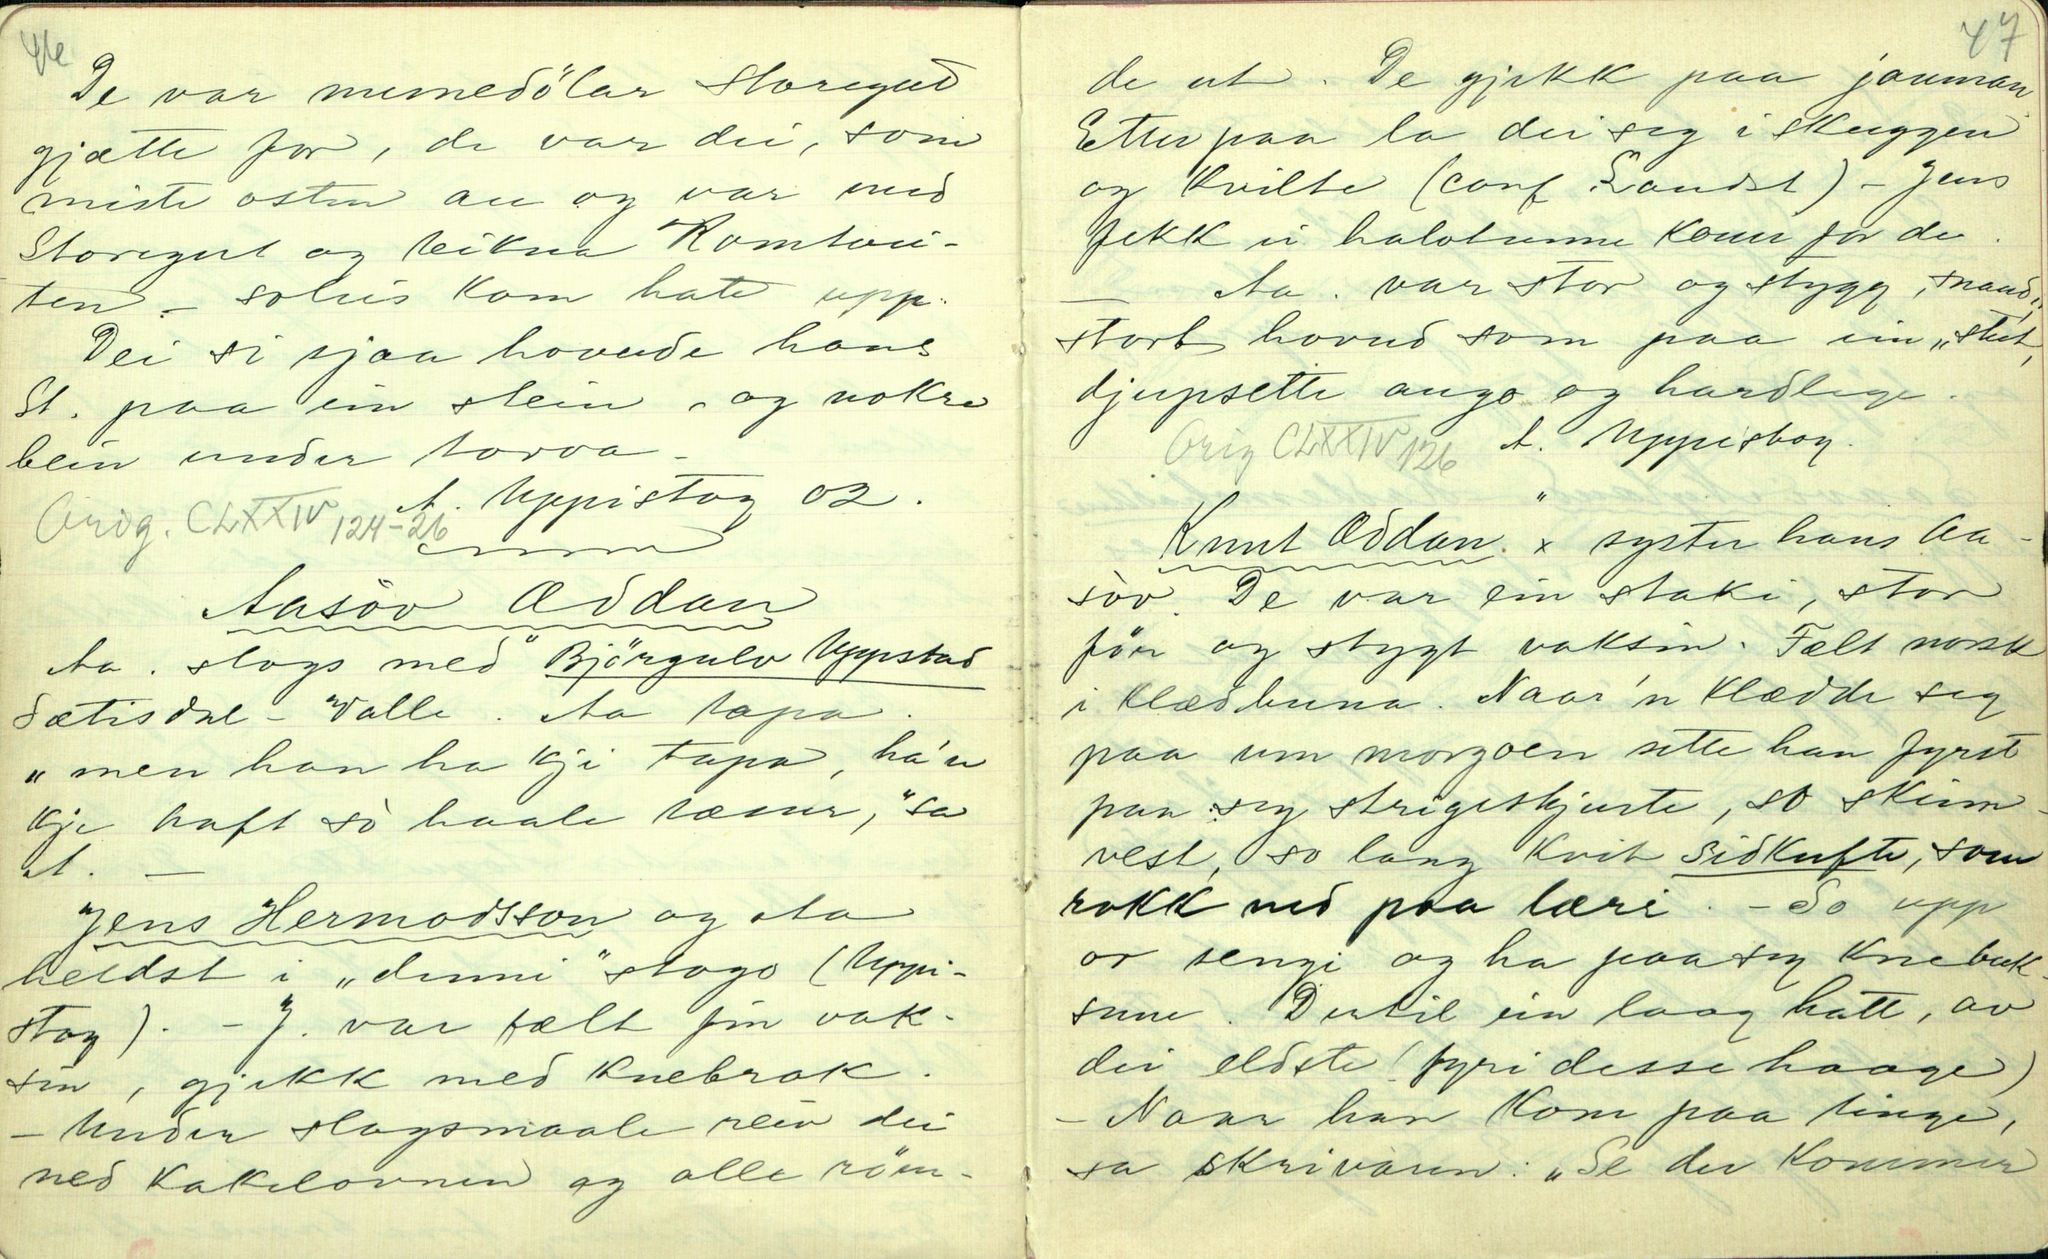 46
De var mumedölar Storegut
gjætte for, de var dei, som
miste osten au og var med
Storegut og leikna Romtvei-
ten - soleis kom hate upp.
Dei si sjaa hovude hans
St. paa ein stein og nokre
bein under torva -
A. Uppistog 02.
Orig. CLXXIV 124-26
Aasöv Øddan
Aa. slogs med Björgulv Uppstad
Sætisdal - Valle. Aa tapa.
„men han ha kji tapa, há'n
kje haft sò haale tæner," sa
A. —
Jens Hermodsson og Aa
heldst i „dinni" stogo (Uppi-
stog). - J. var fælt fin vak-
sin, gjekk med knebrok.
- Under slagsmaale reiv dei
ned kakelovnen og alle röm-
47
de ut. De gjekk paa jauman
Etter paa la dei seg i skuggen
og kvilte (conf Landst) - Jens
fekk ei halvtunne konn for de.
— Aa. var stor og stygg,
stort hovud som paa ein „stut,
djupsette augo og hardlege.
A. Uppistog.
Orig CLXXIV 126
Knut Øddan. x syster hans Aa-
sòv. De var ein staki, stor
för og stygt vaksin. Fælt norsk
i klædbuna. Naar 'n klædde seg
paa um morgoen sette han fyrst
paa seg strigeskjurte, so skinn-
vest, so lang kvit sidkufte, som
rokk ned paa læri. - So upp
or sengi og ha paa seg knebuk-
sune. Dertil ein laag hatt, av
dei eldste (fyri desse haage)
- Naar han kom paa tinge,
sa skrivaren: „Se der kommer